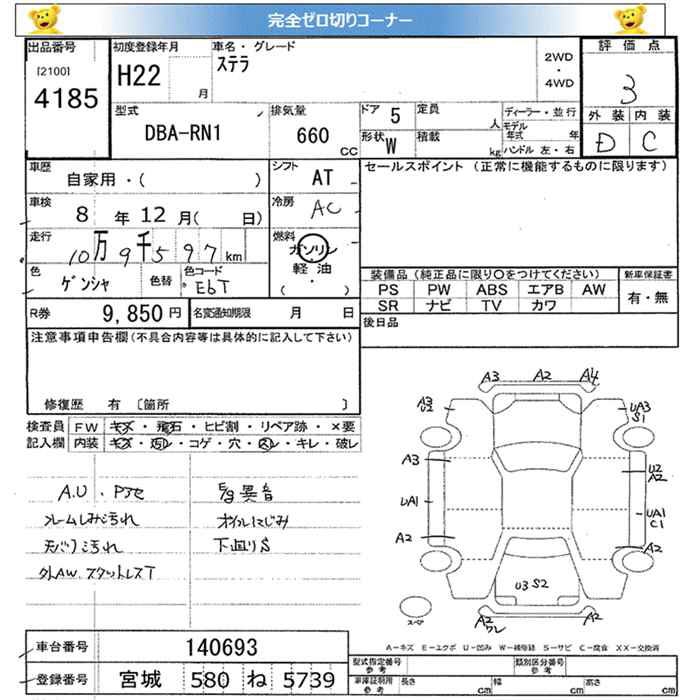 完全ゼロ切りコーナー
出品番号
[2100]
4185
初度登録年月
H22
月
車名・グレード
ステラ
2WD
・
4WD
評価点
3
外装 内装
D C
型式
DBA-RN1
排気量
660
CC
ドア 5
定員
人
形状 W
積載
kg
ディーラー・並行
モデル年式
年
ハンドル 左・右
車歴
自家用・( )
シフト
AT
セールスポイント (正常に機能するものに限ります)
車検
8 年 12 月( 日)
冷房
AC
走行
10万9千597km
燃料
ガソリン
軽油
( ・ )
色
ゲンシャ
色替
色コード
EbT
装備品 (純正品に限り○をつけてください)
PS PW ABS エアB AW
SR ナビ TV カワ
新車保証書
有・無
R券
9,850円
名変通知期限
月 日
後日品
注意事項申告欄(不具合内容等は具体的に記入して下さい)
修復歴 有 [箇所 ]
検査員
記入欄
FW キズ・飛石・ヒビ割・リペア跡・×要
内装 キズ・汚レ・コゲ・穴・スレ・キレ・破レ
A.U・Pブセ
フレームしみ汚れ
天バリ汚れ
外AW.スタットレスT
E/g異音
オイルにじみ
下回りS
A3 A2 A4
A3
U2
UA3
S1
A3
U2
A2
UA1
UA1
C1
A2
A2
U3 S2
A2
ワレ
A2
スペア
A-キズ E-エクボ U-凹み W-補修跡 S-サビ C-腐食 XX-交換済
車台番号
140693
登録番号
宮城 580 ね 5739
型式指定番号
参考
類別区分番号
参考
車庫証明用
参考
長さ
cm
幅
cm
高さ
cm